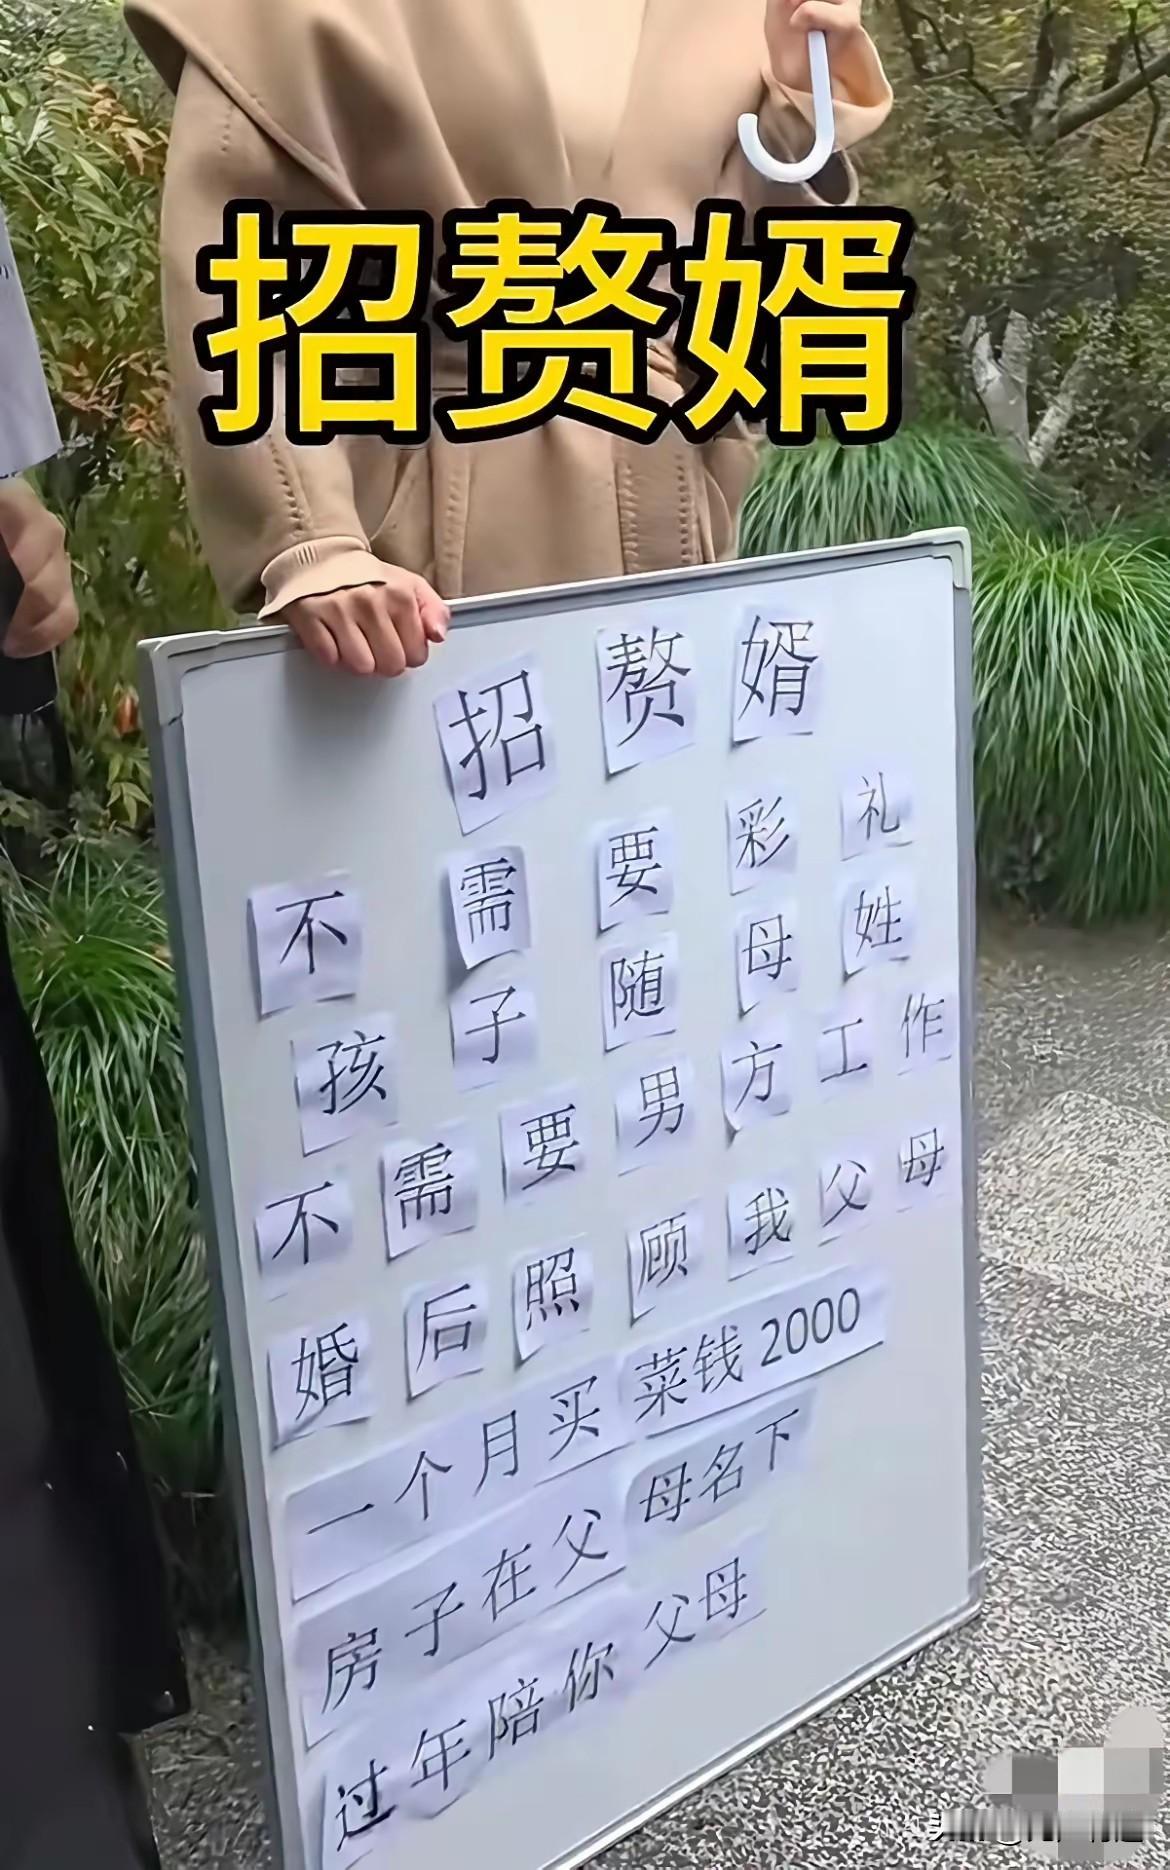 招赘婿
招赘婿
不需要彩礼
孩子随母姓
不需要男方工作
婚后照顾我父母
一个月买菜钱2000
房子在父母名下
过年陪你父母